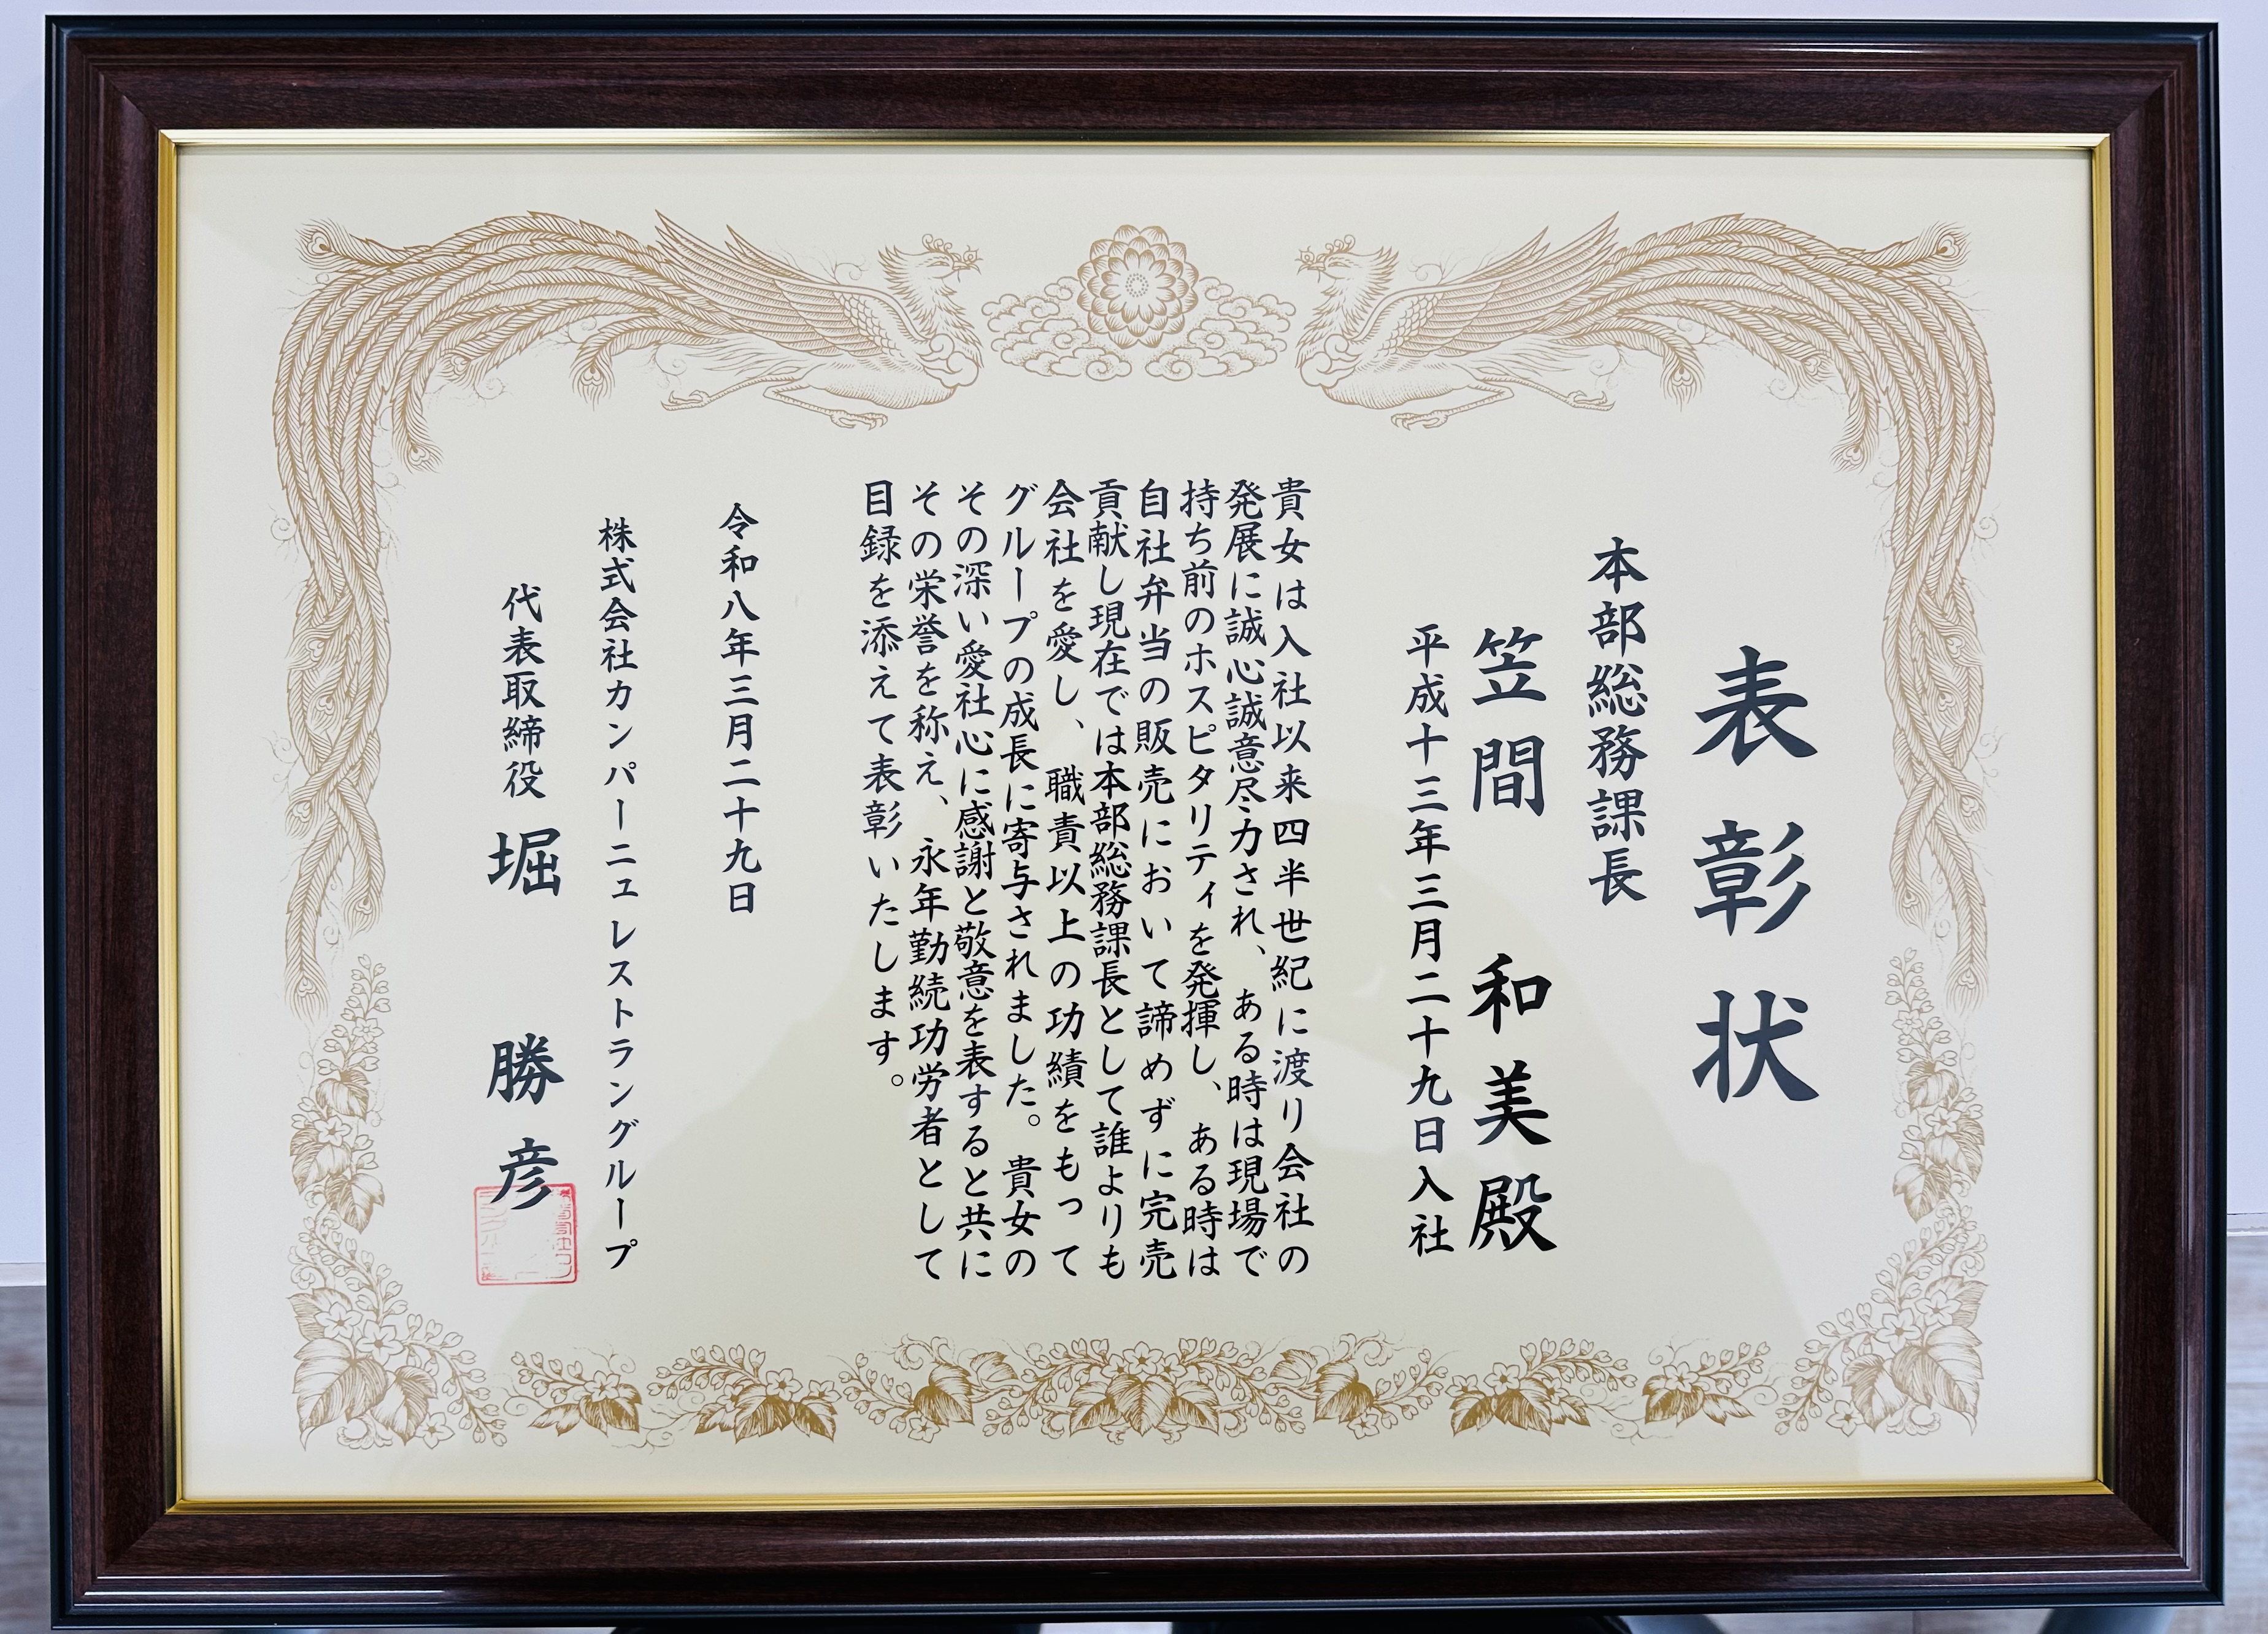 表彰状
本部総務課長
笠間 和美殿
平成十三年三月二十九日入社
貴女は入社以来四半世紀に渡り会社の
発展に誠心誠意尽力され、ある時は現場で
持ち前のホスピタリティを発揮し、ある時は
自社弁当の販売において諦めずに完売
貢献し現在では本部総務課長として誰よりも
会社を愛し、職責以上の功績をもって
グループの成長に寄与されました。貴女の
その深い愛社心に感謝と敬意を表すると共に
その栄誉を称え、永年勤続功労者として
目録を添えて表彰いたします。
令和八年三月二十九日
株式会社カンパーニュレストラングループ
代表取締役 堀 勝彦